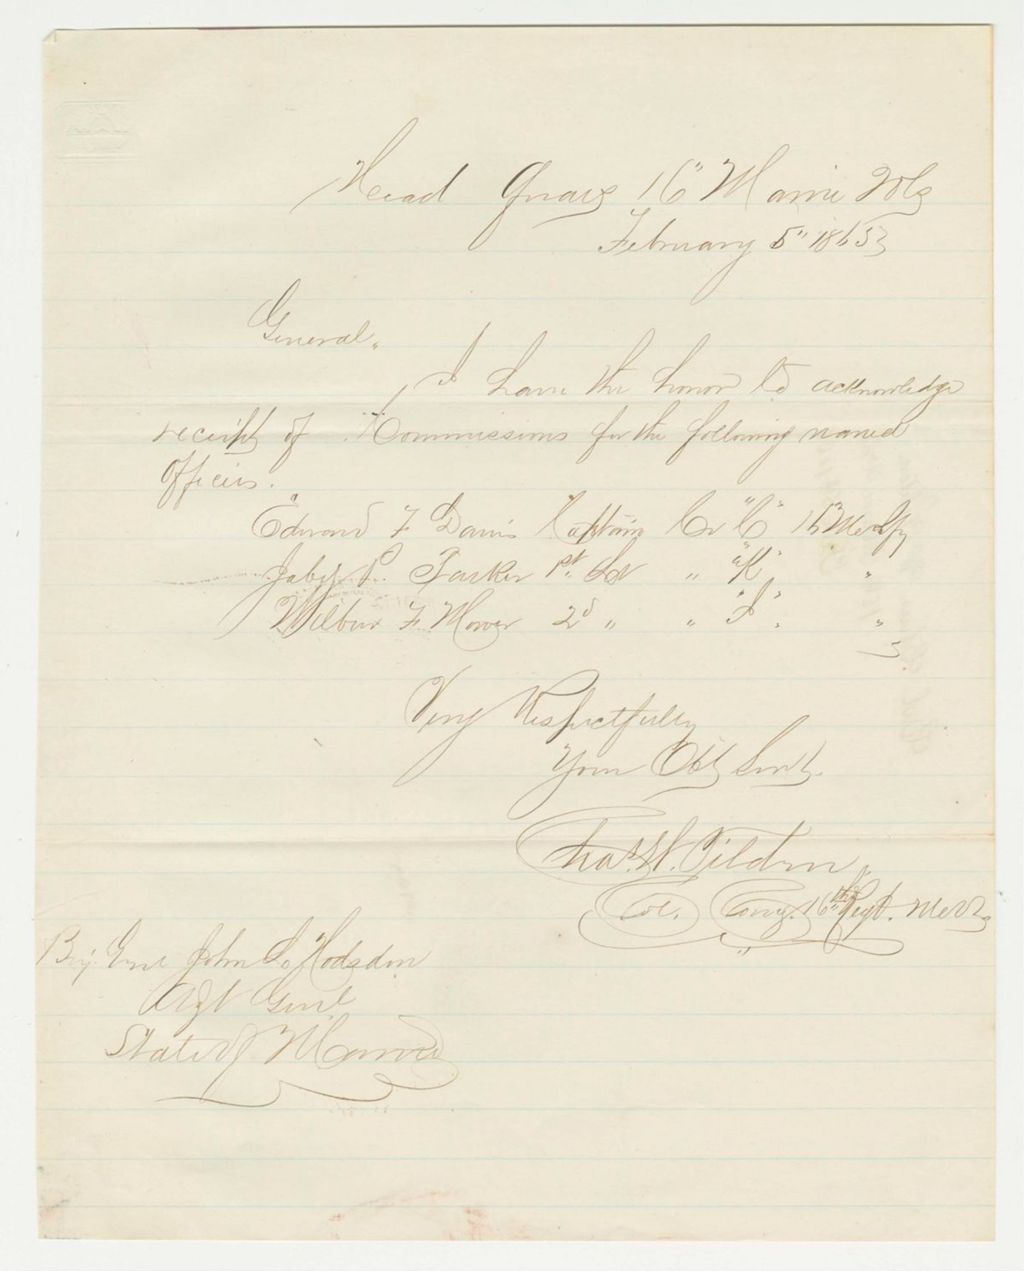 Head Quars 16" Maine Vols
February 5" 1865
General,
I have the honor to acknowledge
receipt of Commissions for the following named
Officers.
Edward F Davis Captain Co "C" 16" Me Vols
Jabez P. Parker 1st Lt " "K" "
Wilbur F Mower 2d " " "I" "
Very Respectfully
Your Obt Servt.
Chas. W. Tilden
Col. Comg. 16th Regt. Me Vols
Brig. Genl John L. Hodsdon
Agt Genl
State of Maine